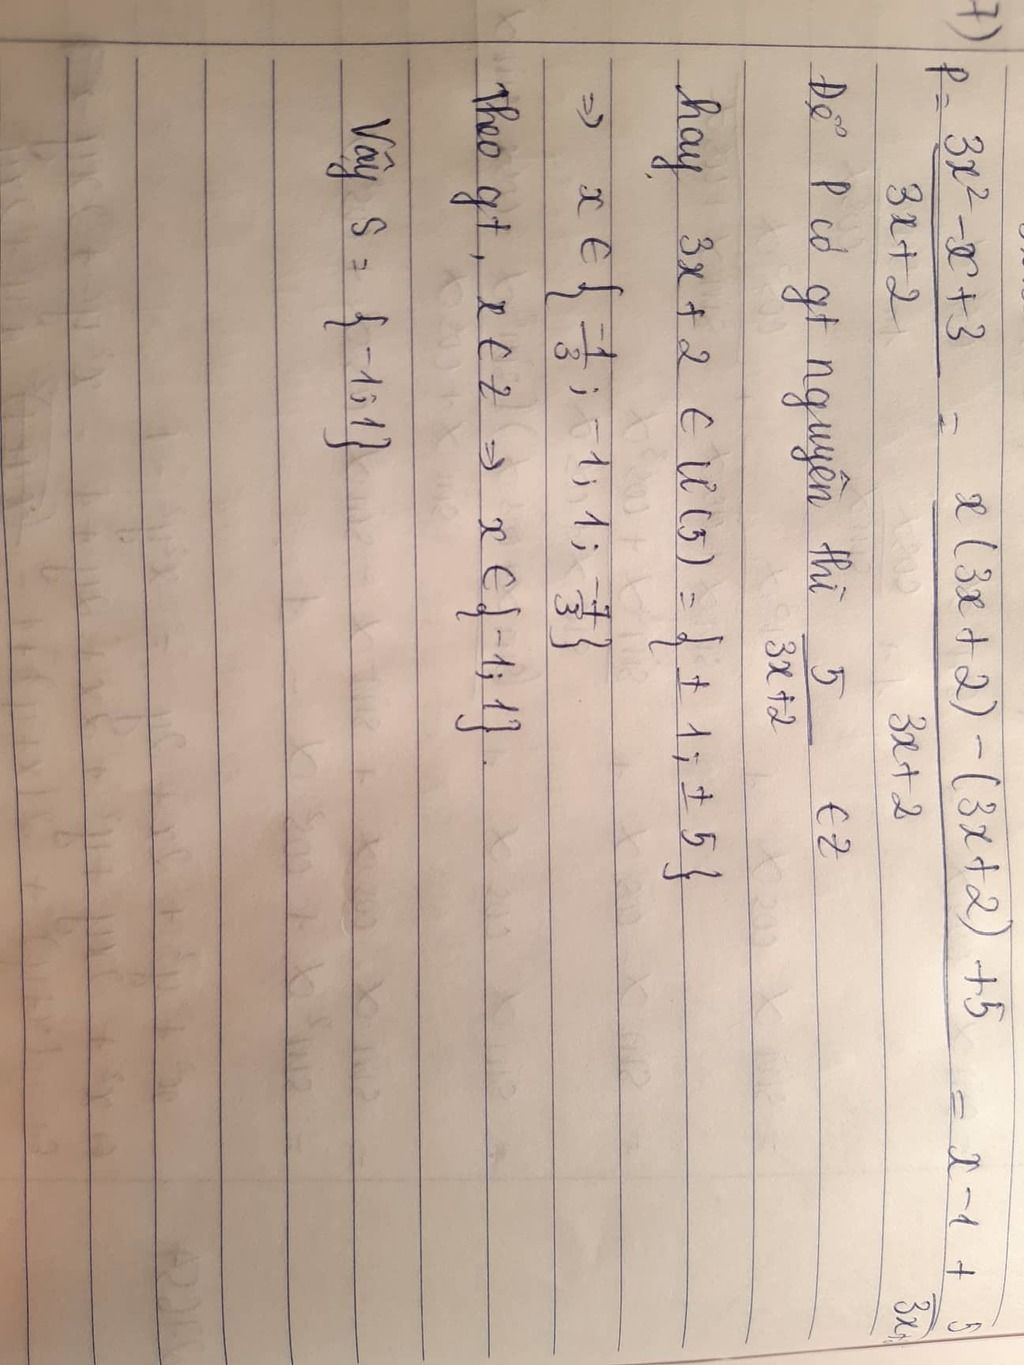 7)
P = \frac{3x² - x + 3}{3x + 2} = \frac{x(3x + 2) - (3x + 2) + 5}{3x + 2} = x - 1 + \frac{5}{3x+}
Để P có gt nguyên thì \frac{5}{3x+2} ∈ Z
hay 3x + 2 ∈ Ư(5) = { ± 1; ± 5 }
=> x ∈ { \frac{-1}{3}; -1; 1; \frac{-7}{3} }
Theo gt, x ∈ Z => x ∈ { -1; 1 }.
Vậy S = { -1; 1 }